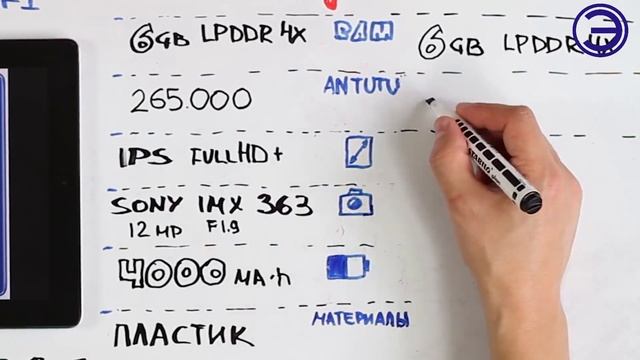 6GB LPDDR 4X RAM 6GB LPDDR 4X
265.000 ANTUTU
IPS FULLHD+
SONY IMX 363
12 MP F1.9
4000 MA·h
МАТЕРИАЛЫ
ПЛАСТИК